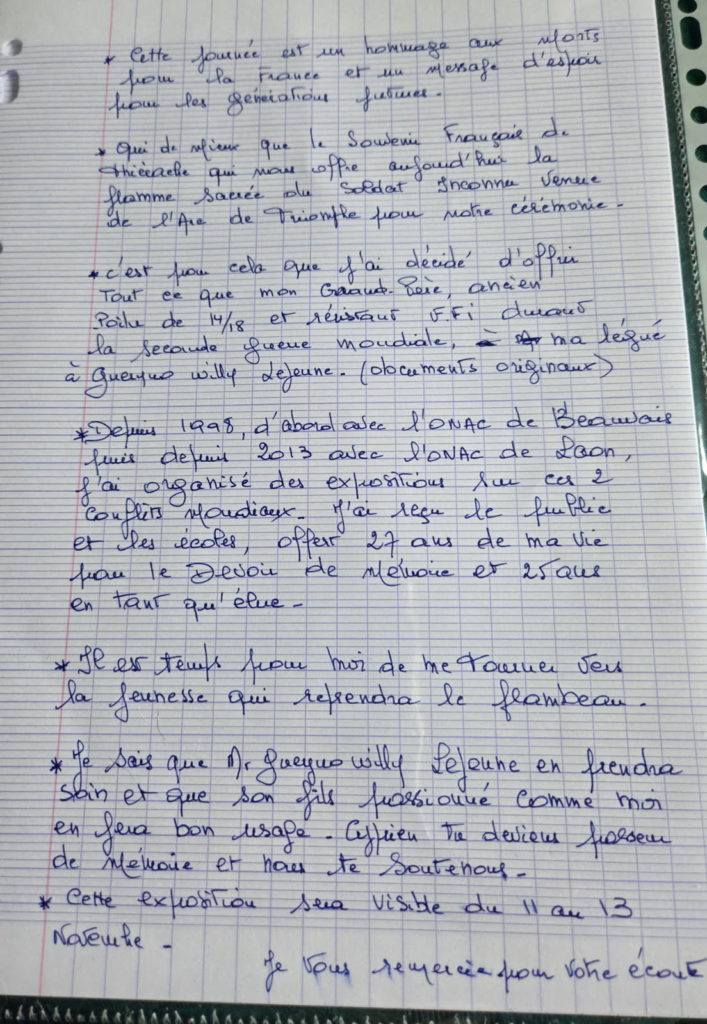 * Cette journée est un hommage aux Morts
pour la France et un message d'espoir
pour les générations futures.
* Qui de Mieux que le Souvenir Français de
Thiérache qui nous offre aujourd'hui la
flamme sacrée du Soldat Inconnu venue
de l'Arc de Triomphe pour notre cérémonie.
* c'est pour cela que j'ai décidé d'offrir
Tout ce que mon Grand-Père, ancien
Poilu de 14/18 et résistant F.F.i durant
la seconde guerre mondiale, ma légué
à willy Lejeune. (documents originaux)
* Depuis 1998, d'abord avec l'ONAC de Beauvais
puis depuis 2013 avec l'ONAC de Laon,
j'ai organisé des expositions sur ces 2
conflits Mondiaux. J'ai reçu le public
et les écoles, offert 27 ans de ma vie
pour le Devoir de Mémoire et 25 ans
en tant qu'élue.
* Il est temps pour moi de me Tourner vers
la jeunesse qui reprendra le flambeau.
* Je sais que Mr willy Lejeune en prendra
soin et que son fils passionné comme moi
en fera bon usage. Cyprien Tu deviens passeur
de Mémoire et nous te soutenons.
* Cette exposition sera visible du 11 au 13
Novembre.
Je vous remercie pour votre écoute